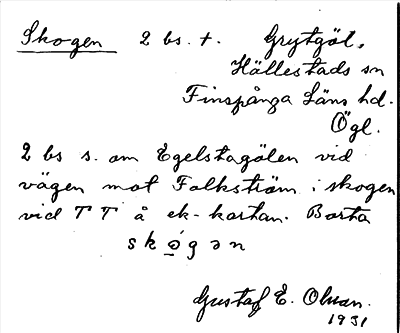 Skogen 2 bs. t. Grytgöl,
Hällestads sn
Finspånga Läns hd.
Ögl.
2 bs s. om Egelstagölen vid
vägen mot Folkström i skogen
vid T T å ek-kartan. Borta
skọ́gən
Gustaf E. Olsson.
1931